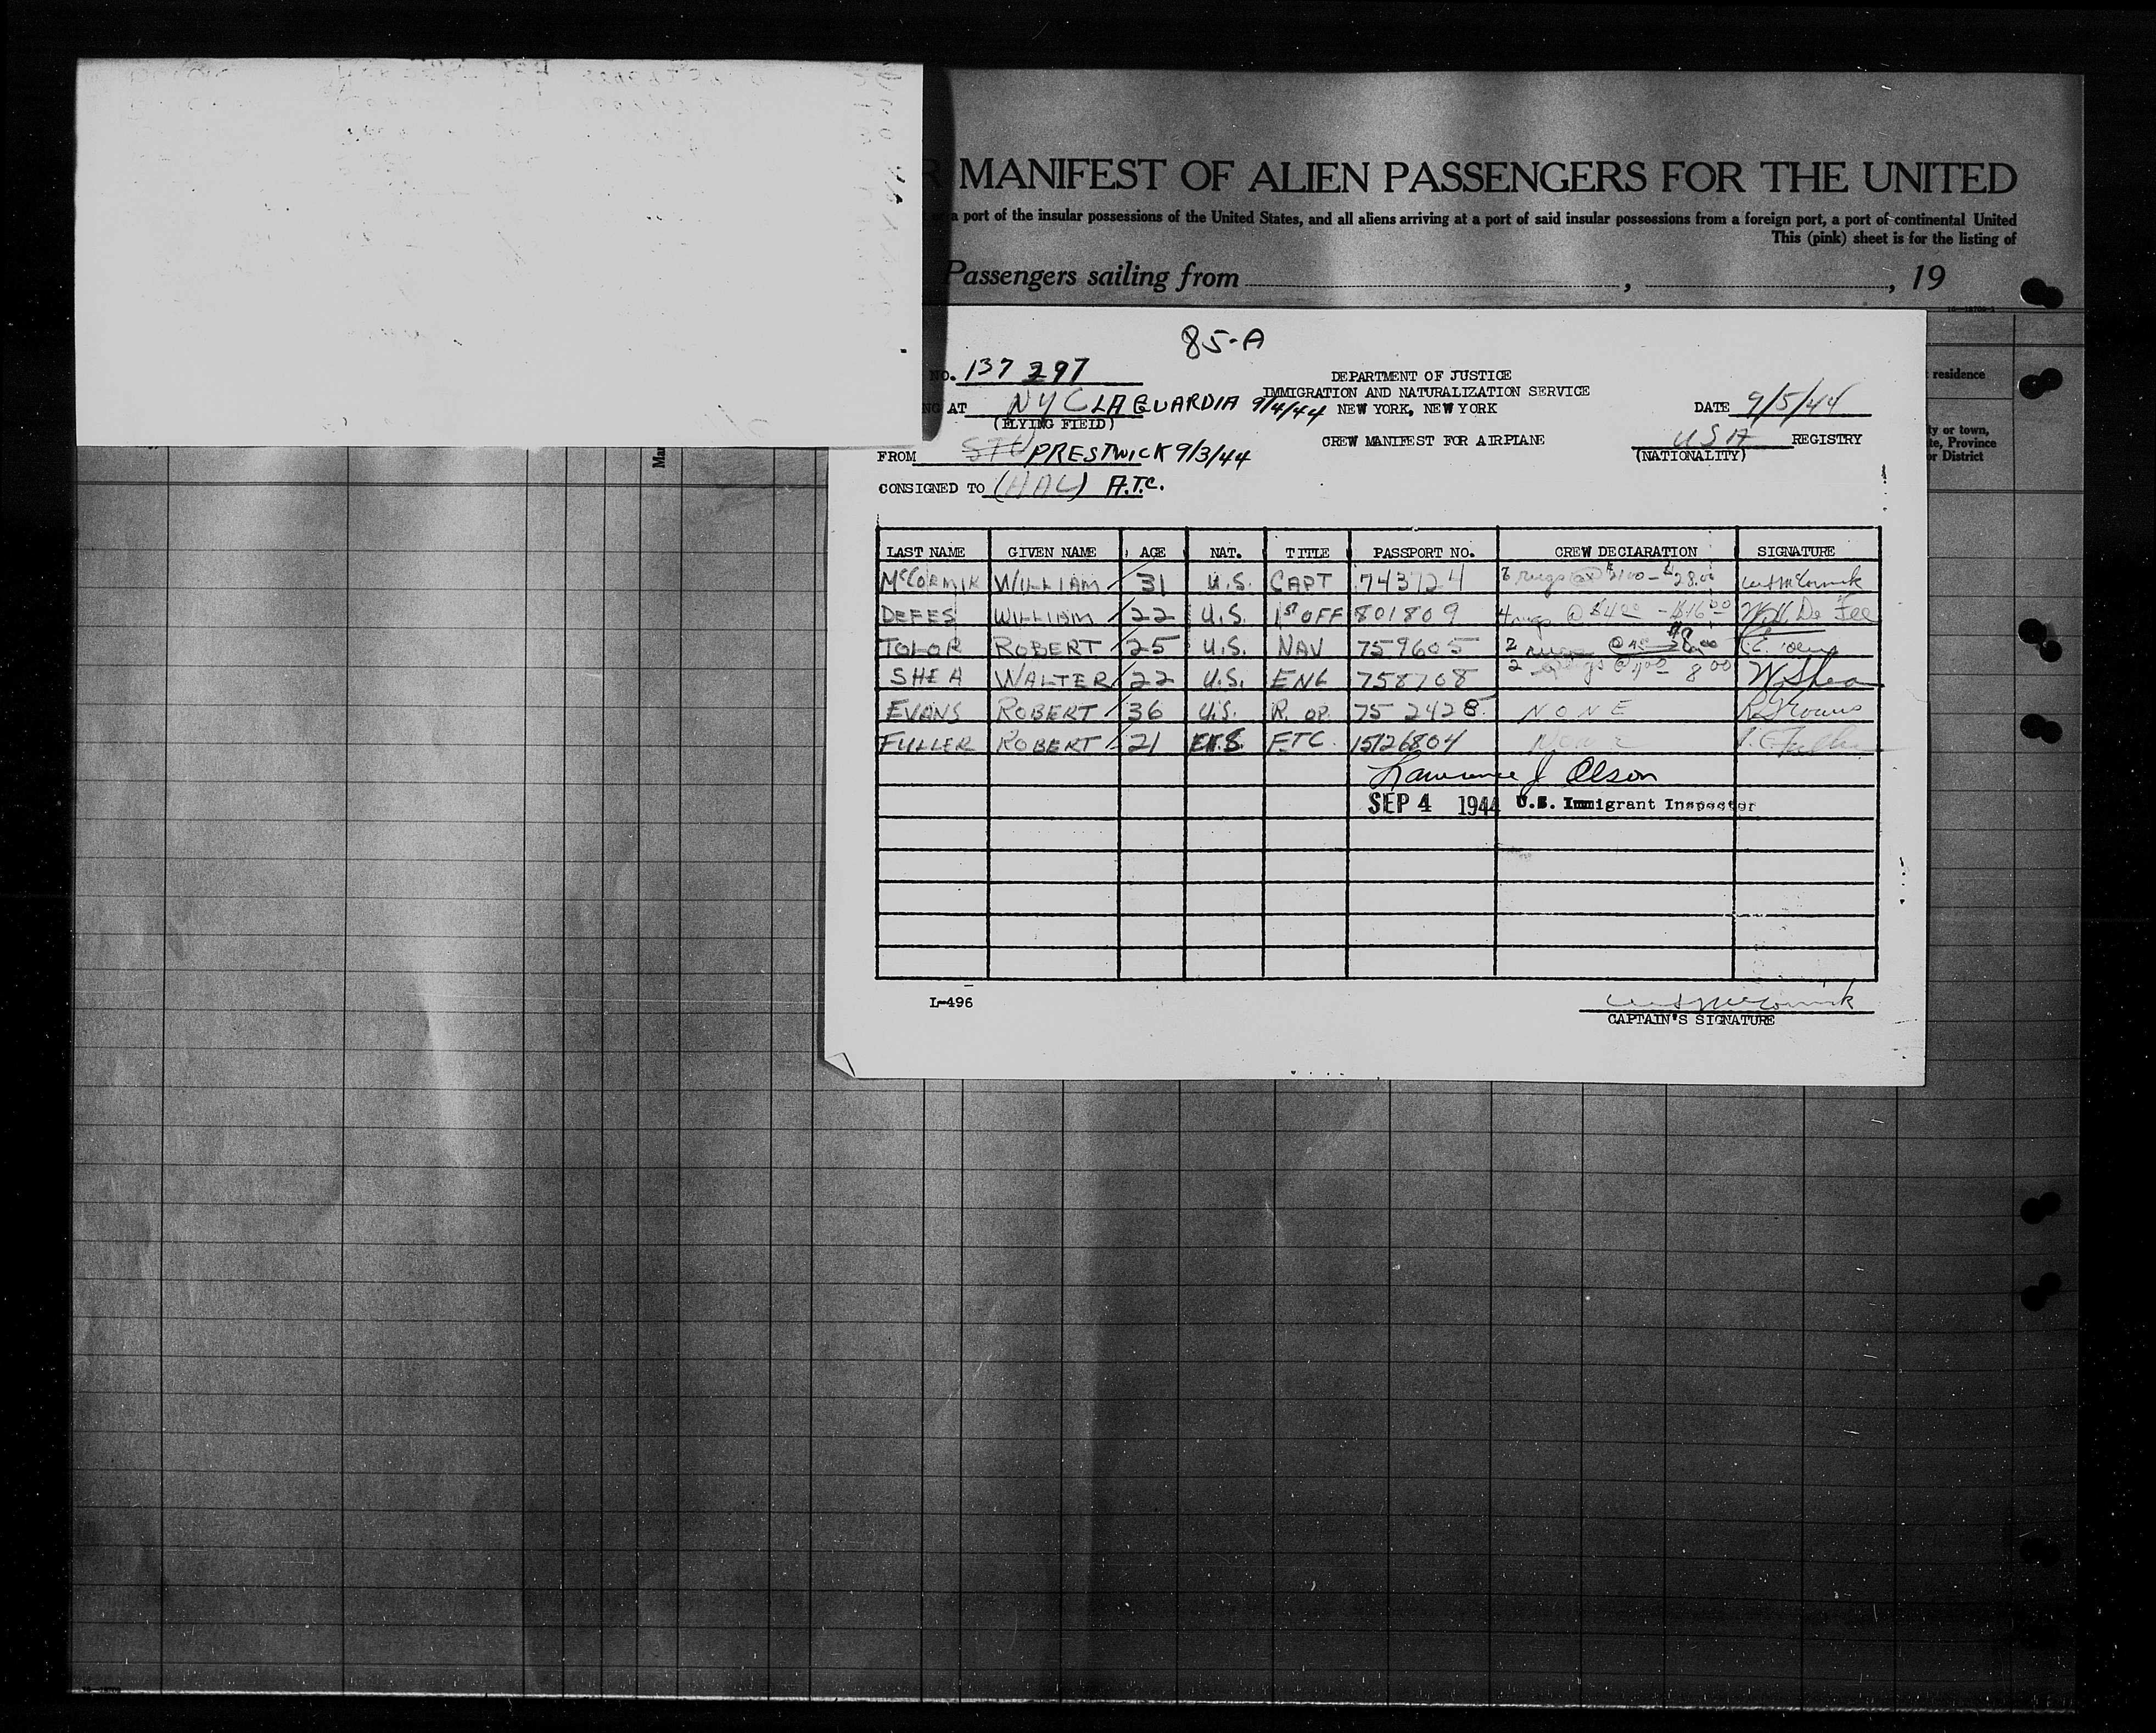 MANIFEST OF ALIEN PASSENGERS FOR THE UNITED
a port of the insular possessions of the United States, and all aliens arriving at a port of said insular possessions from a foreign port, a port of continental United
This (pink) sheet is for the listing of
Passengers sailing from , , 19
residence
ty or town,
te, Province
or District
85-A
NO. 137 297
DEPARTMENT OF JUSTICE
IMMIGRATION AND NATURALIZATION SERVICE
AT NYC LAGUARDIA 9/4/44 NEW YORK, NEW YORK DATE 9/5/44
(FLYING FIELD)
CREW MANIFEST FOR AIRPLANE USA REGISTRY
FROM PRESTWICK 9/3/44 (NATIONALITY)
CONSIGNED TO A.T.C.
LAST NAME GIVEN NAME AGE NAT. TITLE PASSPORT NO. CREW DECLARATION SIGNATURE
McCORMIK WILLIAM 31 U.S. CAPT 743724 28.00
DEFES WILLIAM 22 U.S. 1st OFF 801809 4 rugs @ $4.00 - $16.00 W.H. De Fee
TOLOR ROBERT 25 U.S. NAV 759605 2
SHEA WALTER 22 U.S. ENG 758768 2 8.00 W Shea
EVANS ROBERT 36 U.S. R. OP. 75 2428 NONE
FULLER ROBERT 21 U.S. FTC 15126804 NONE
Lawrence J Olson
SEP 4 1944 U.S. Immigrant Inspector
L-496
CAPTAIN'S SIGNATURE